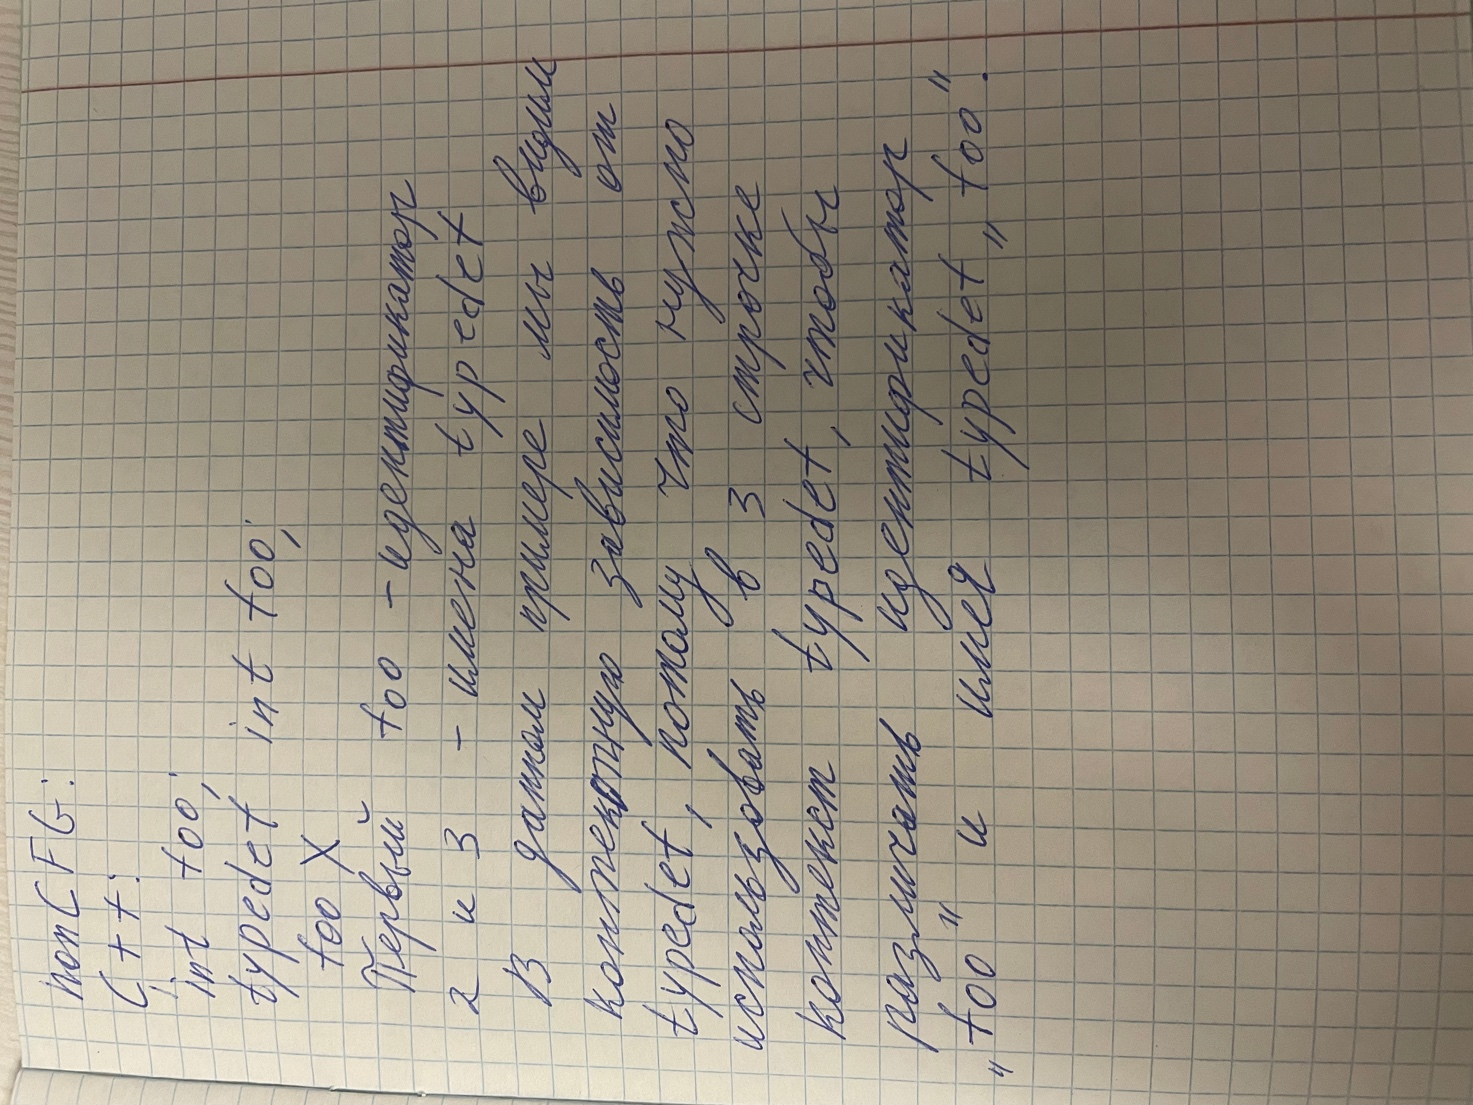 nonCFG:
C++:
int foo;
typedef int foo;
foo X
Первый foo - идентификатор
2 и 3 - имена typedef
В данном примере мы видим
контекстную зависимость от
typedef, потому что нужно
использовать в 3 строчке
контекст typedef, чтобы
различать идентификатор
"foo" и имея typedef "foo".